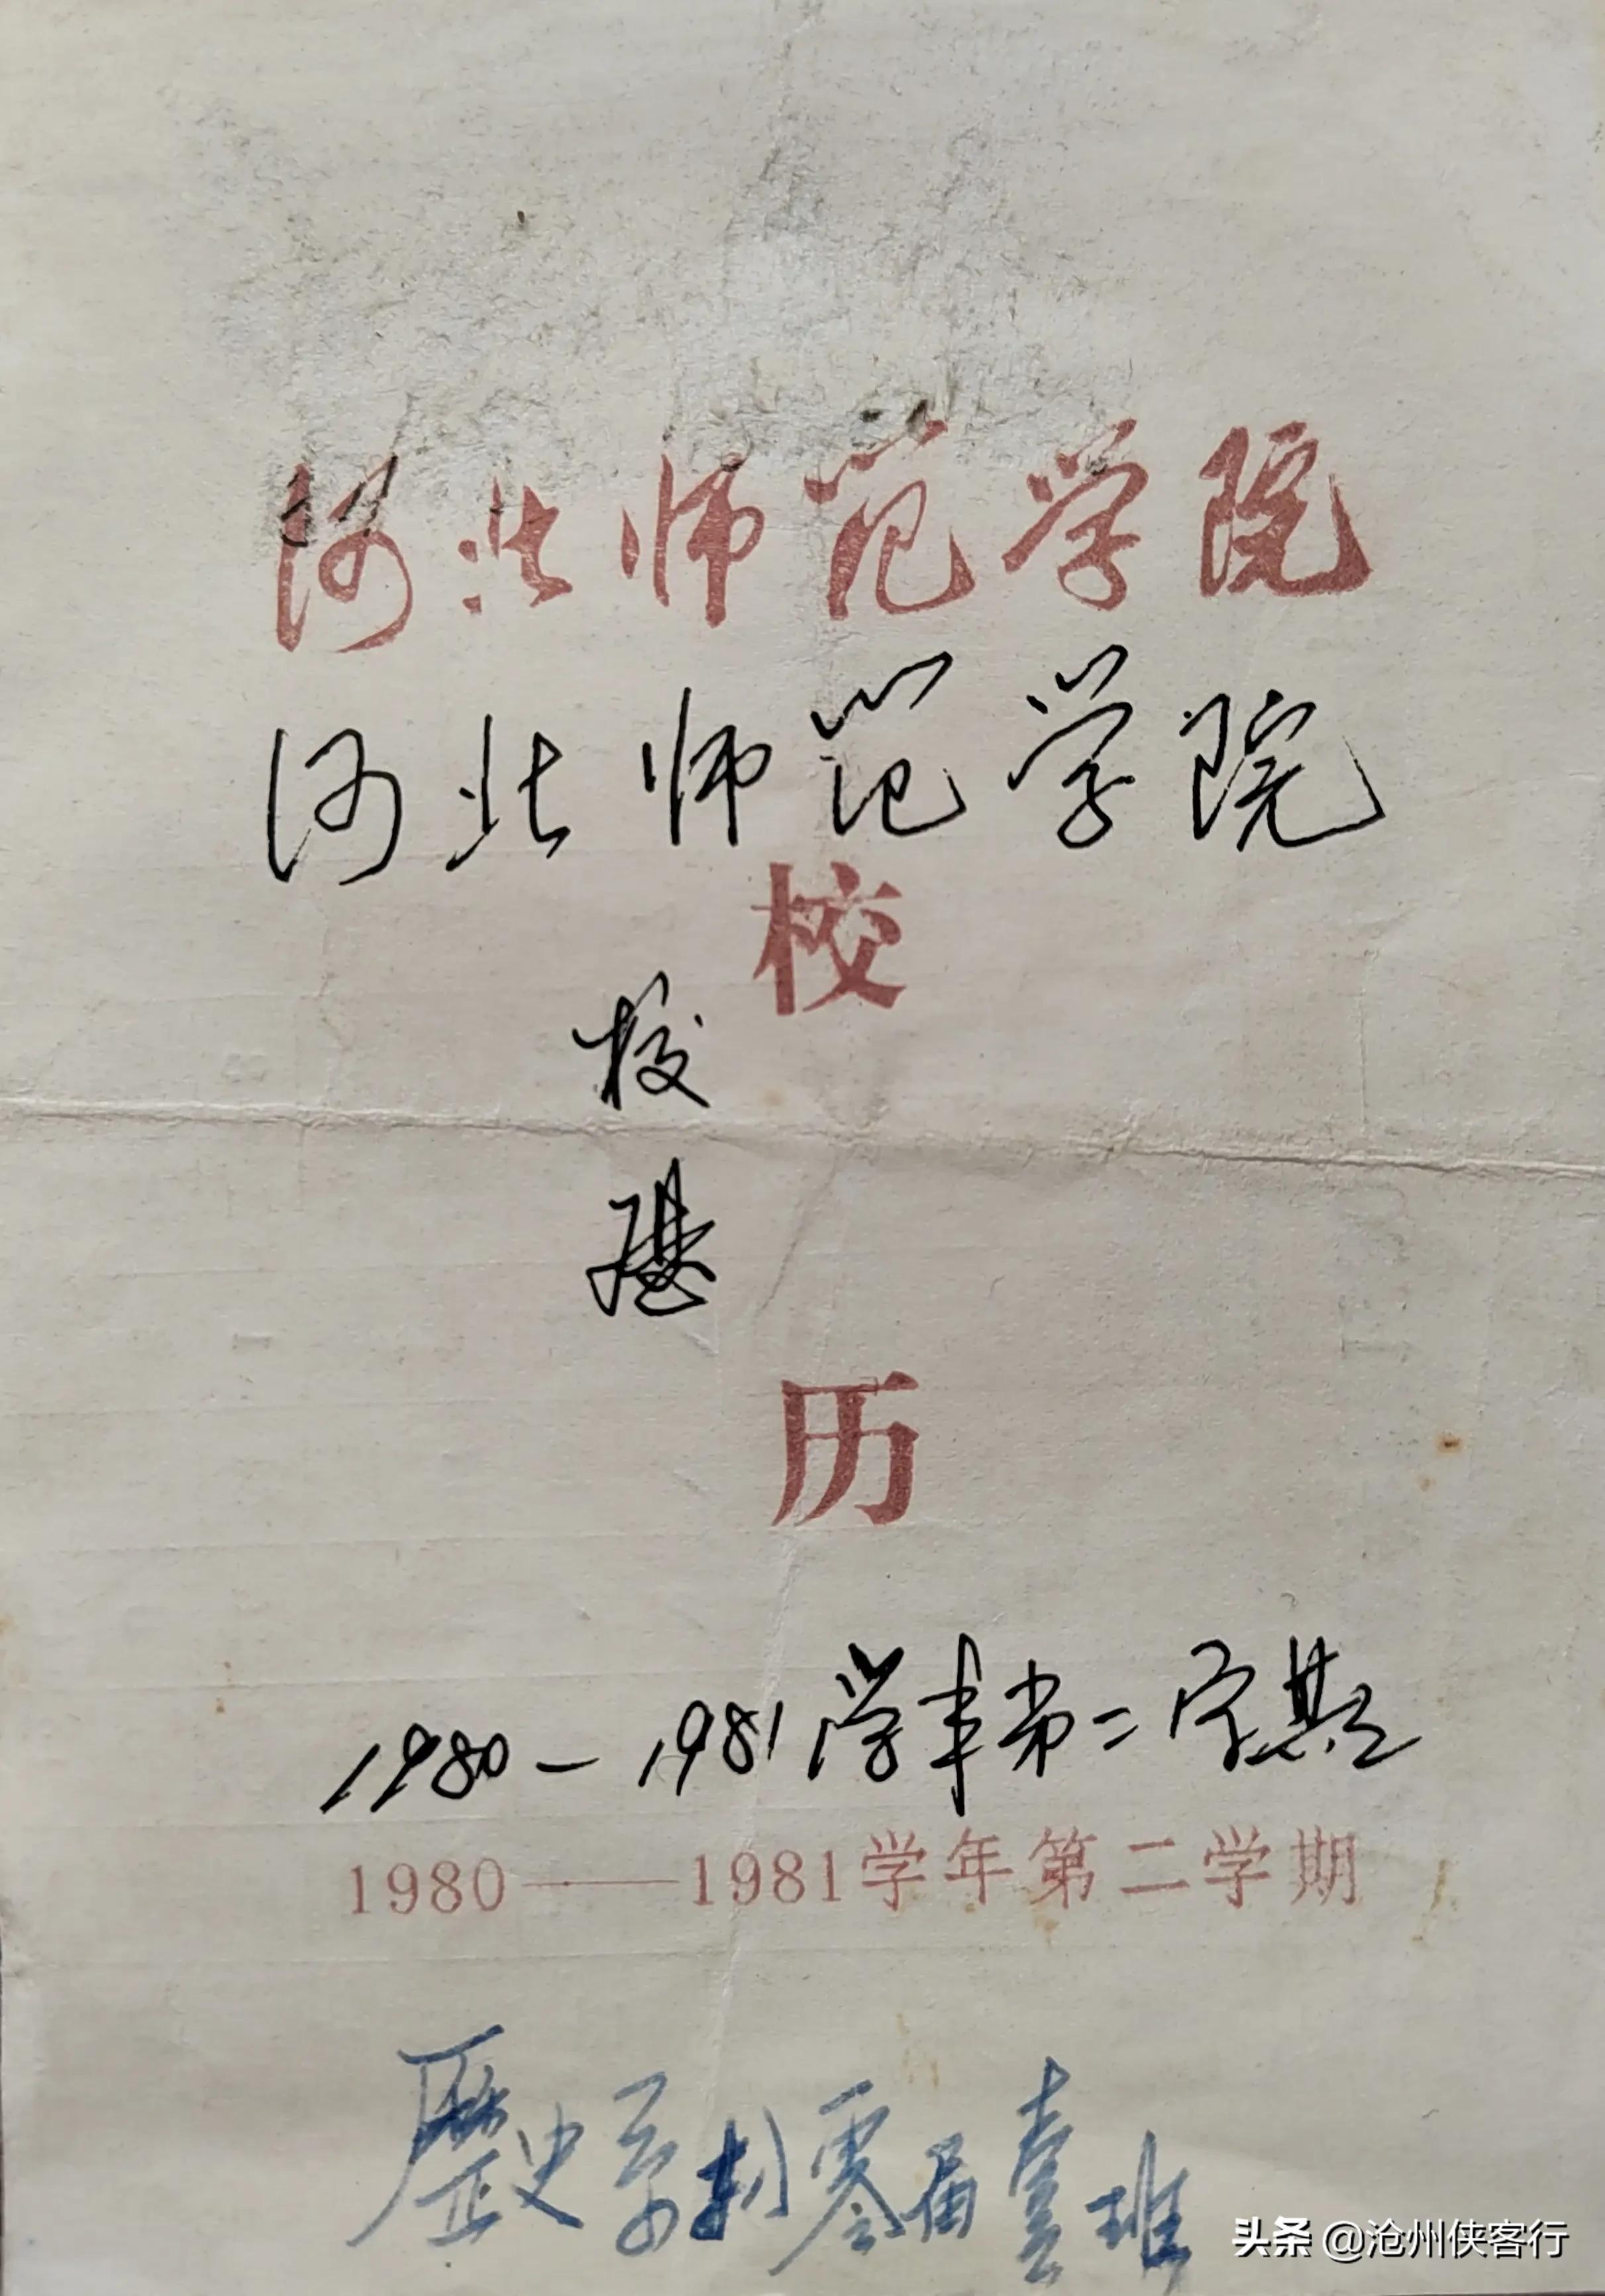 河北师范学院
河北师范学院
校
校
历
1980—1981学年第二学期
1980——1981学年第二学期
歷史系捌零届壹班
头条 @沧州侠客行